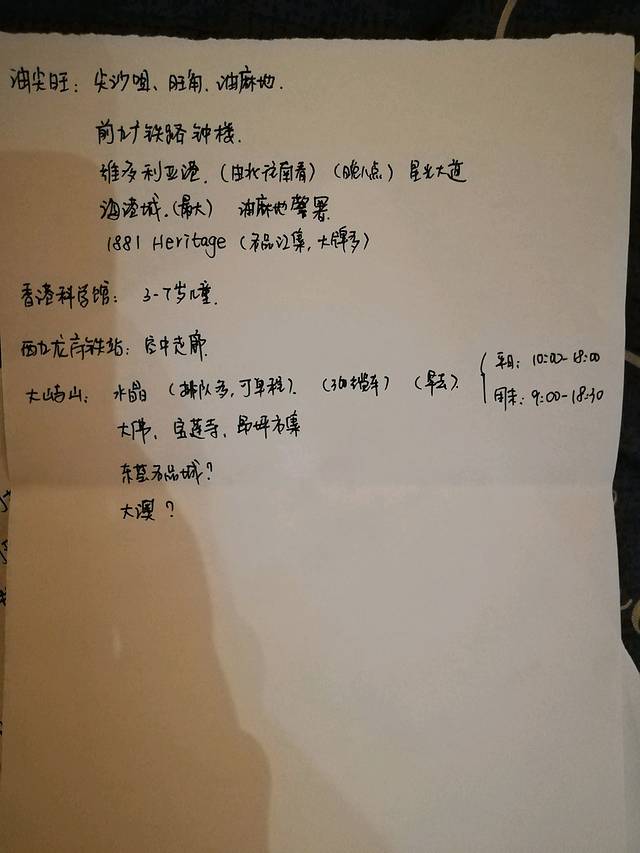 油尖旺：尖沙咀、旺角、油麻地.
前九广铁路钟楼.
维多利亚港.（由北往南看）（晚八点）星光大道
海港城.（最大） 油麻地警署.
1881 Heritage（名品汇集，大牌多）
香港科学馆： 3-7岁儿童.
西九龙高铁站：空中走廊.
大屿山： 水晶（排队多，可单程）.（缆车）（早去）. 平日：10:00-18:00
周末：9:00-18:30
大佛、宝莲寺、昂坪市集
东荟名品城？
大澳？